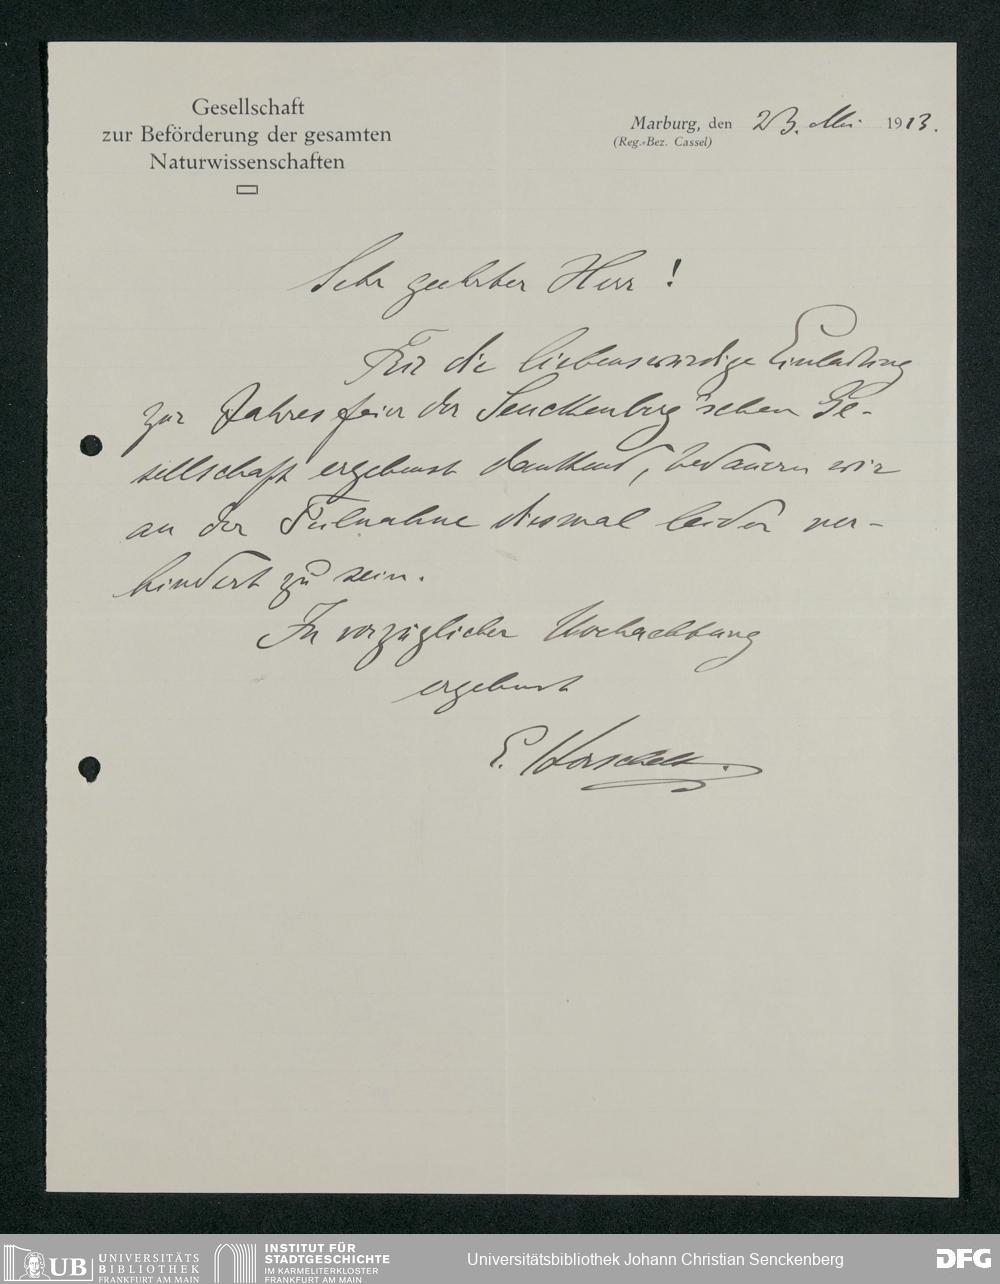 Gesellschaft
zur Beförderung der gesamten
Naturwissenschaften
Marburg, den 23. Mai 1913.
(Reg.-Bez. Cassel)
Sehr geehrter Herr!
Für die liebenswürdige Einladung
zur Jahresfeier der Senckenberg'schen Ge-
sellschaft ergebenst dankend, bedauern wir
an der Teilnahme diesmal leider ver-
hindert zu sein.
In vorzüglicher Hochachtung
ergebenst
E. Korschelt.
UB UNIVERSITÄTS
BIBLIOTHEK
FRANKFURT AM MAIN
INSTITUT FÜR
STADTGESCHICHTE
IM KARMELITERKLOSTER
FRANKFURT AM MAIN
Universitätsbibliothek Johann Christian Senckenberg
DFG